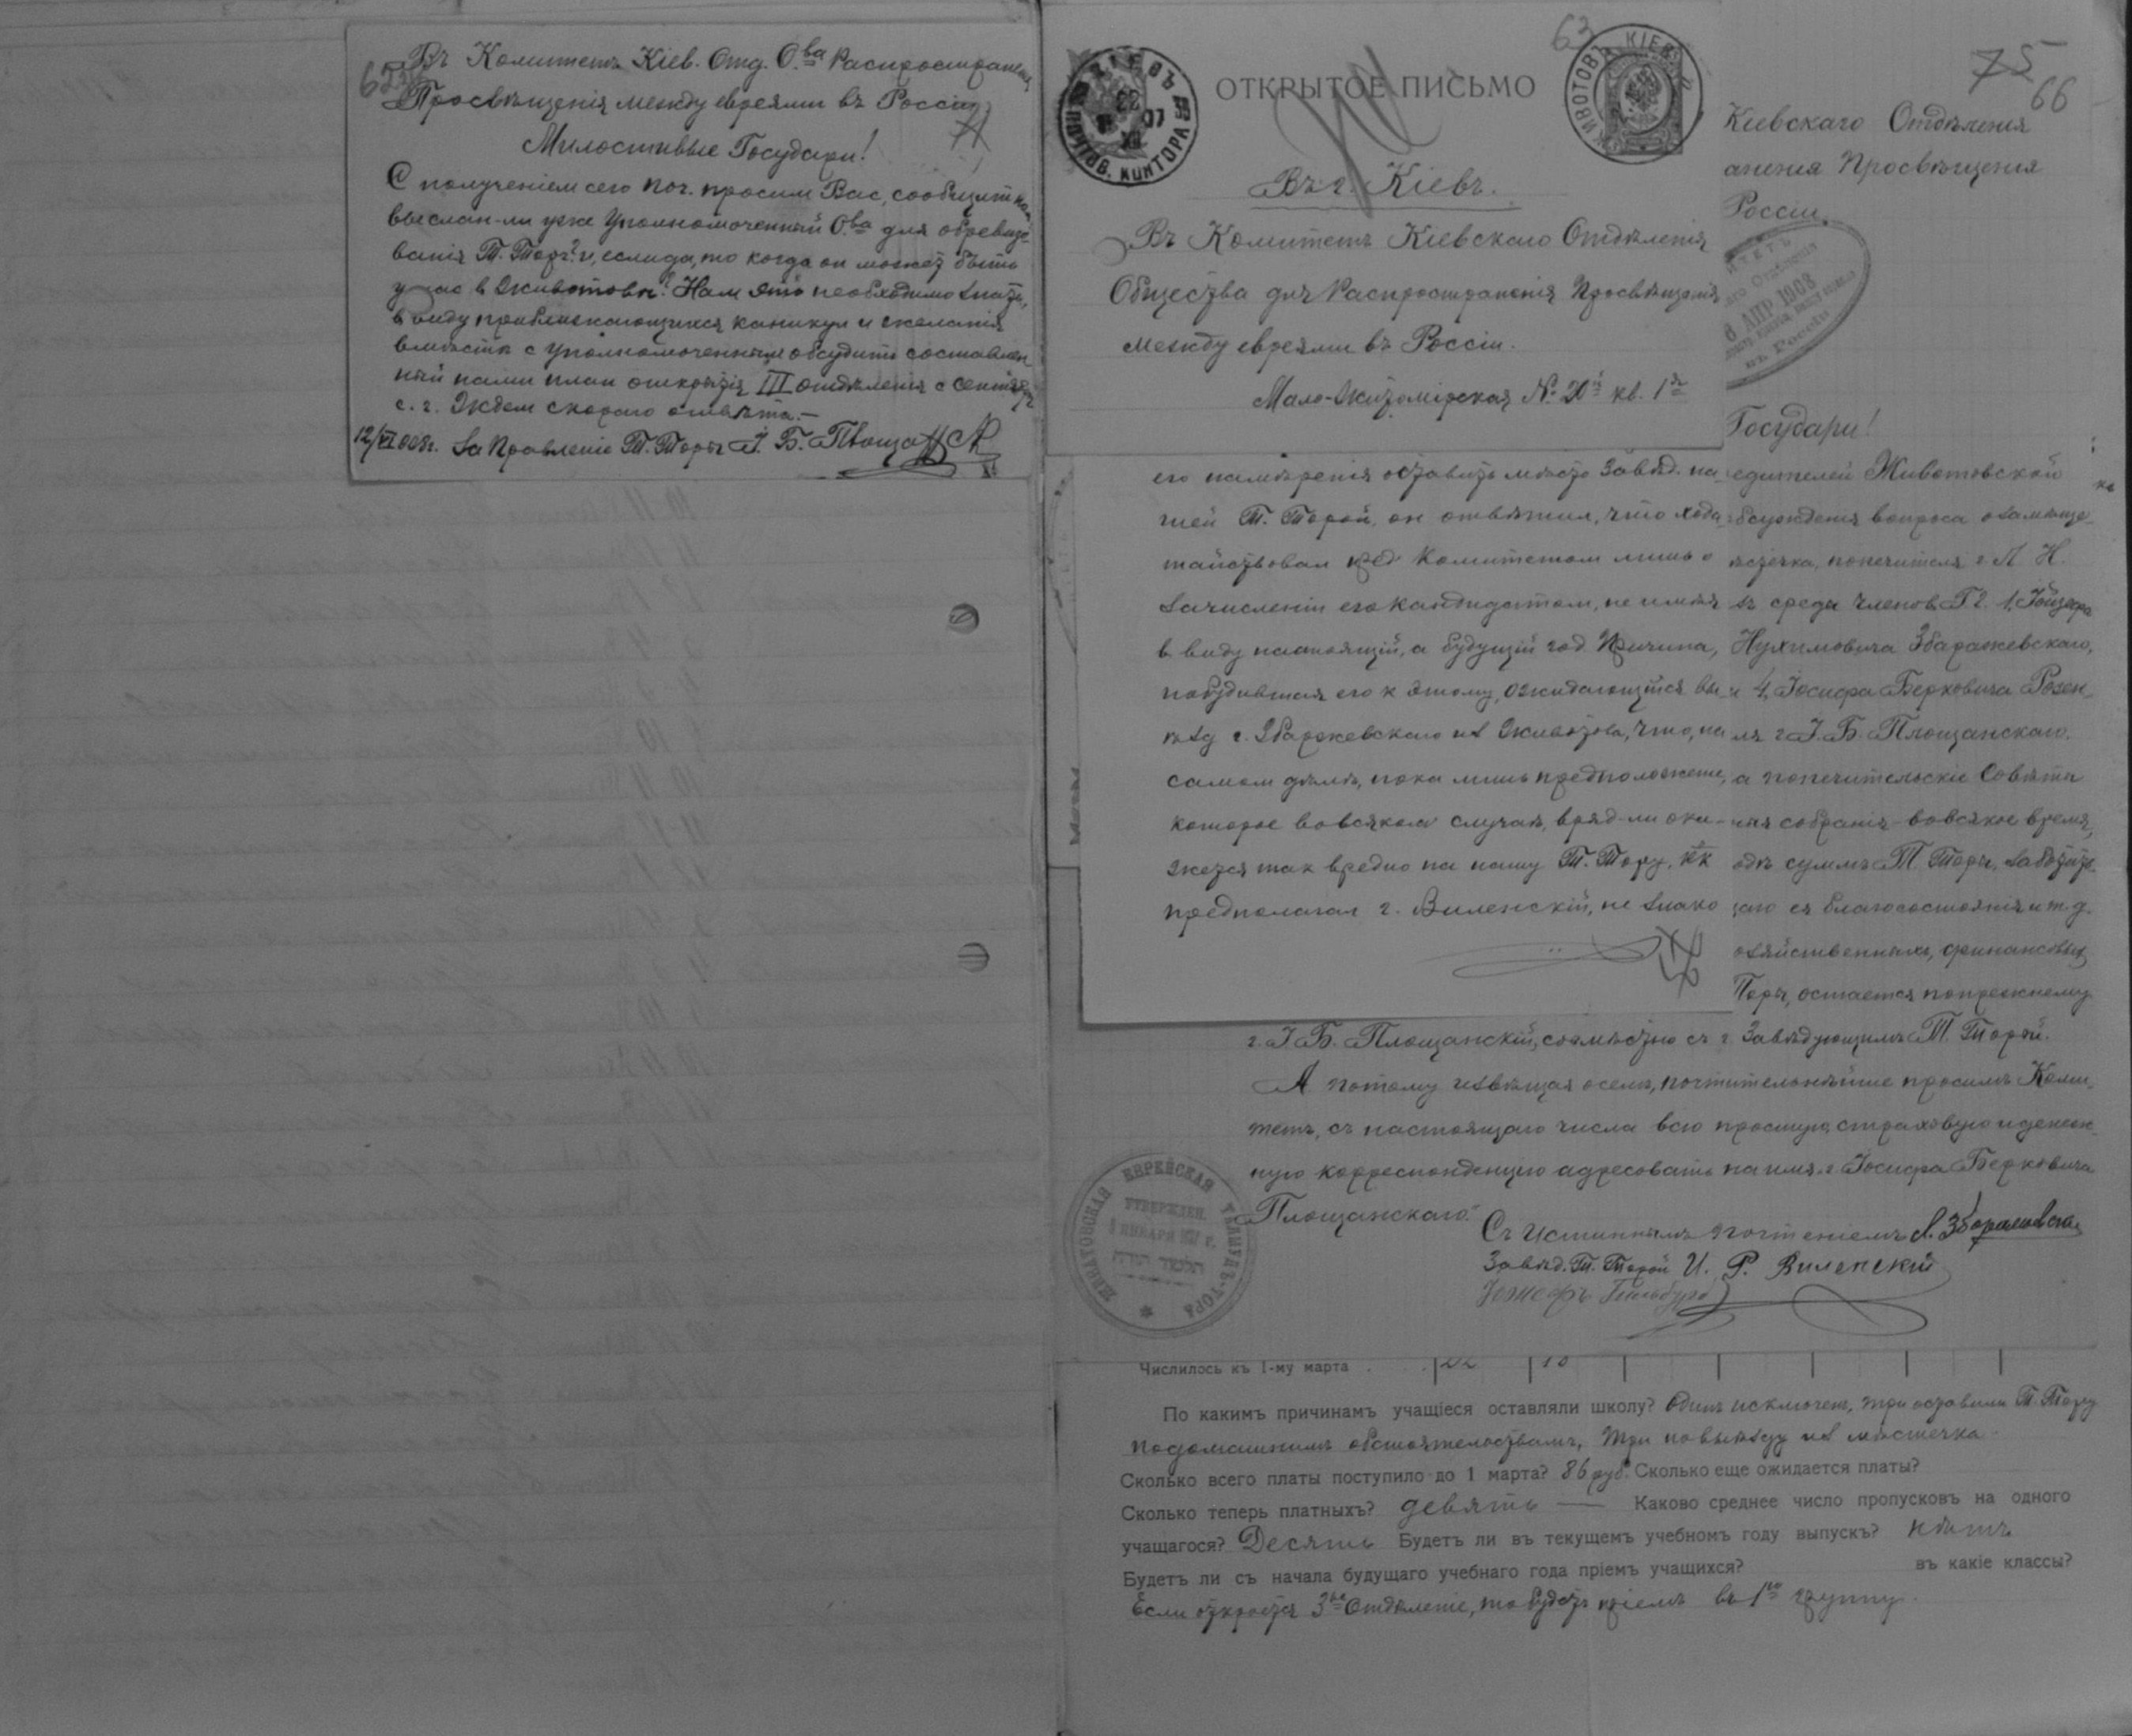 Въ Комитетъ Кіев. Отд. О.ва Распространенія
Просвѣщенія между евреями въ Россіи
71
Милостивые Государи!
С полученіем сего поч. просим Вас, сообщить нам
выслан-ли уже Уполномоченный О.ва для обревизо-
ванія Т. Торы? и, если да, то когда он может быть
у нас в Животовѣ? Нам это необходимо знать,
в виду приближающихся каникул и желанія
вмѣстѣ с уполномоченным обсудить составлен
ный нами план открытія III отдѣленія с сентября
с. г. Ждем скораго отвѣта.—
12/VI 008 г. За Правленіе Т. Торы І. Б. Площа
63
ОТКРЫТОЕ ПИСЬМО
КІЕВЪ
22
ПОЧТОВ. КОНТОРА
ЖИВОТОВЪ КІЕВ.
Въ г. Кіевъ.
Въ Комитетъ Кіевскаго Отдѣленія
Общества для Распространенія Просвѣщенія
между евреями въ Россіи.
Мало-Житомірская № 20й кв. 1я
75
66
Кіевскаго Отдѣленія
аненія Просвѣщенія
Россіи.
АПР 1908
въ Россіи
Государи!
его намѣренія оставить мѣсто Завѣд. на-
шей Т. Торой, он отвѣтил, что хода-
тайствовал пред Комитетом лишь о
зачисленіи его кандидатом, не имѣя
в виду настоящій, а будущій год. Причина,
побудившая его к этому, ожидающійся вы-
ѣзд г. Збаржевскаго из Животова, что, на
самом дѣлѣ, пока лишь предположеніе,
которое во всяком случаѣ, вряд-ли ока-
жется так вредно на нашу Т. Тору, как
предполагал г. Виленскій, не знако
едителей Животовской
бсужденія вопроса о замѣще-
ѣстечка, попечителя г. Л. Н.
въ среды членов Г.г. 1,
Нухимовича Збаражевскаго,
и 4, Іосифа Берковича Розен-
ля г. І. Б. Площанскаго.
а попечительскіе Совѣты
ныя собранія во всякое время,
одѣ суммъ Т. Торы,
щаго ея благосостоянія и т. д.
озяйственныхъ, финансовых
Торы, остается попрежнему
г. І. Б. Площанскій, совмѣстно съ г. Завѣдующимъ Т. Торой.
А потому извѣщая о семъ, почтительнѣйше просимъ Коми-
тетъ, съ настоящаго числа всю простую, страховую и денеж-
ную корреспонденцію адресовать на имя г. Іосифа Берковича
Площанскаго.
Съ истиннымъ почтеніемъ Л. Збаражевскій
Завѣд. Т. Торой И. Р. Виленскій
ЖИВАТОВСКАЯ ЕВРЕЙСКАЯ ТАЛМУДЪ-ТОРА
УТВЕРЖДЕН.
ЯНВАРЯ
תלמוד תורה
Числилось къ 1-му марта
По какимъ причинамъ учащіеся оставляли школу? Одинъ исключенъ, три оставили Т. Тору
по домашнимъ обстоятельствамъ, три по выѣзду из мѣстечка.
Сколько всего платы поступило до 1 марта? 86 руб. Сколько еще ожидается платы?
Сколько теперь платныхъ? девять — Каково среднее число пропусковъ на одного
учащагося? Десять Будетъ ли въ текущемъ учебномъ году выпускъ? нѣтъ
Будетъ ли съ начала будущаго учебнаго года пріемъ учащихся? въ какіе классы?
Если откроется 3ье Отдѣленіе, то будетъ пріемъ въ 1ю группу.